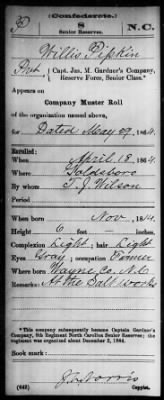 (Confederate.)
P 8 N.C.
Senior Reserves.
Willis Pipkin
Pvt, Capt. Jas. M. Gardner's Company,
Reserve Form, Senior Class.*
Appears on
Company Muster Roll
of the organization named above,
for Dated May 27, 1864.
Enrolled:
When April 18, 1864.
Where Goldsboro
By whom T. J. Wilson
Period
When born Nov, 1814.
Height 6 feet — inches.
Complexion Light; hair Light
Eyes Gray; occupation Farmer
Where born Wayne Co. N.C.
Remarks: At the Salt works
*This company subsequently became Captain Gardner's Company, 8th Regiment North Carolina Senior Reserves; the regiment was organized about December 2, 1864.
Book mark:
(642) Copyist.